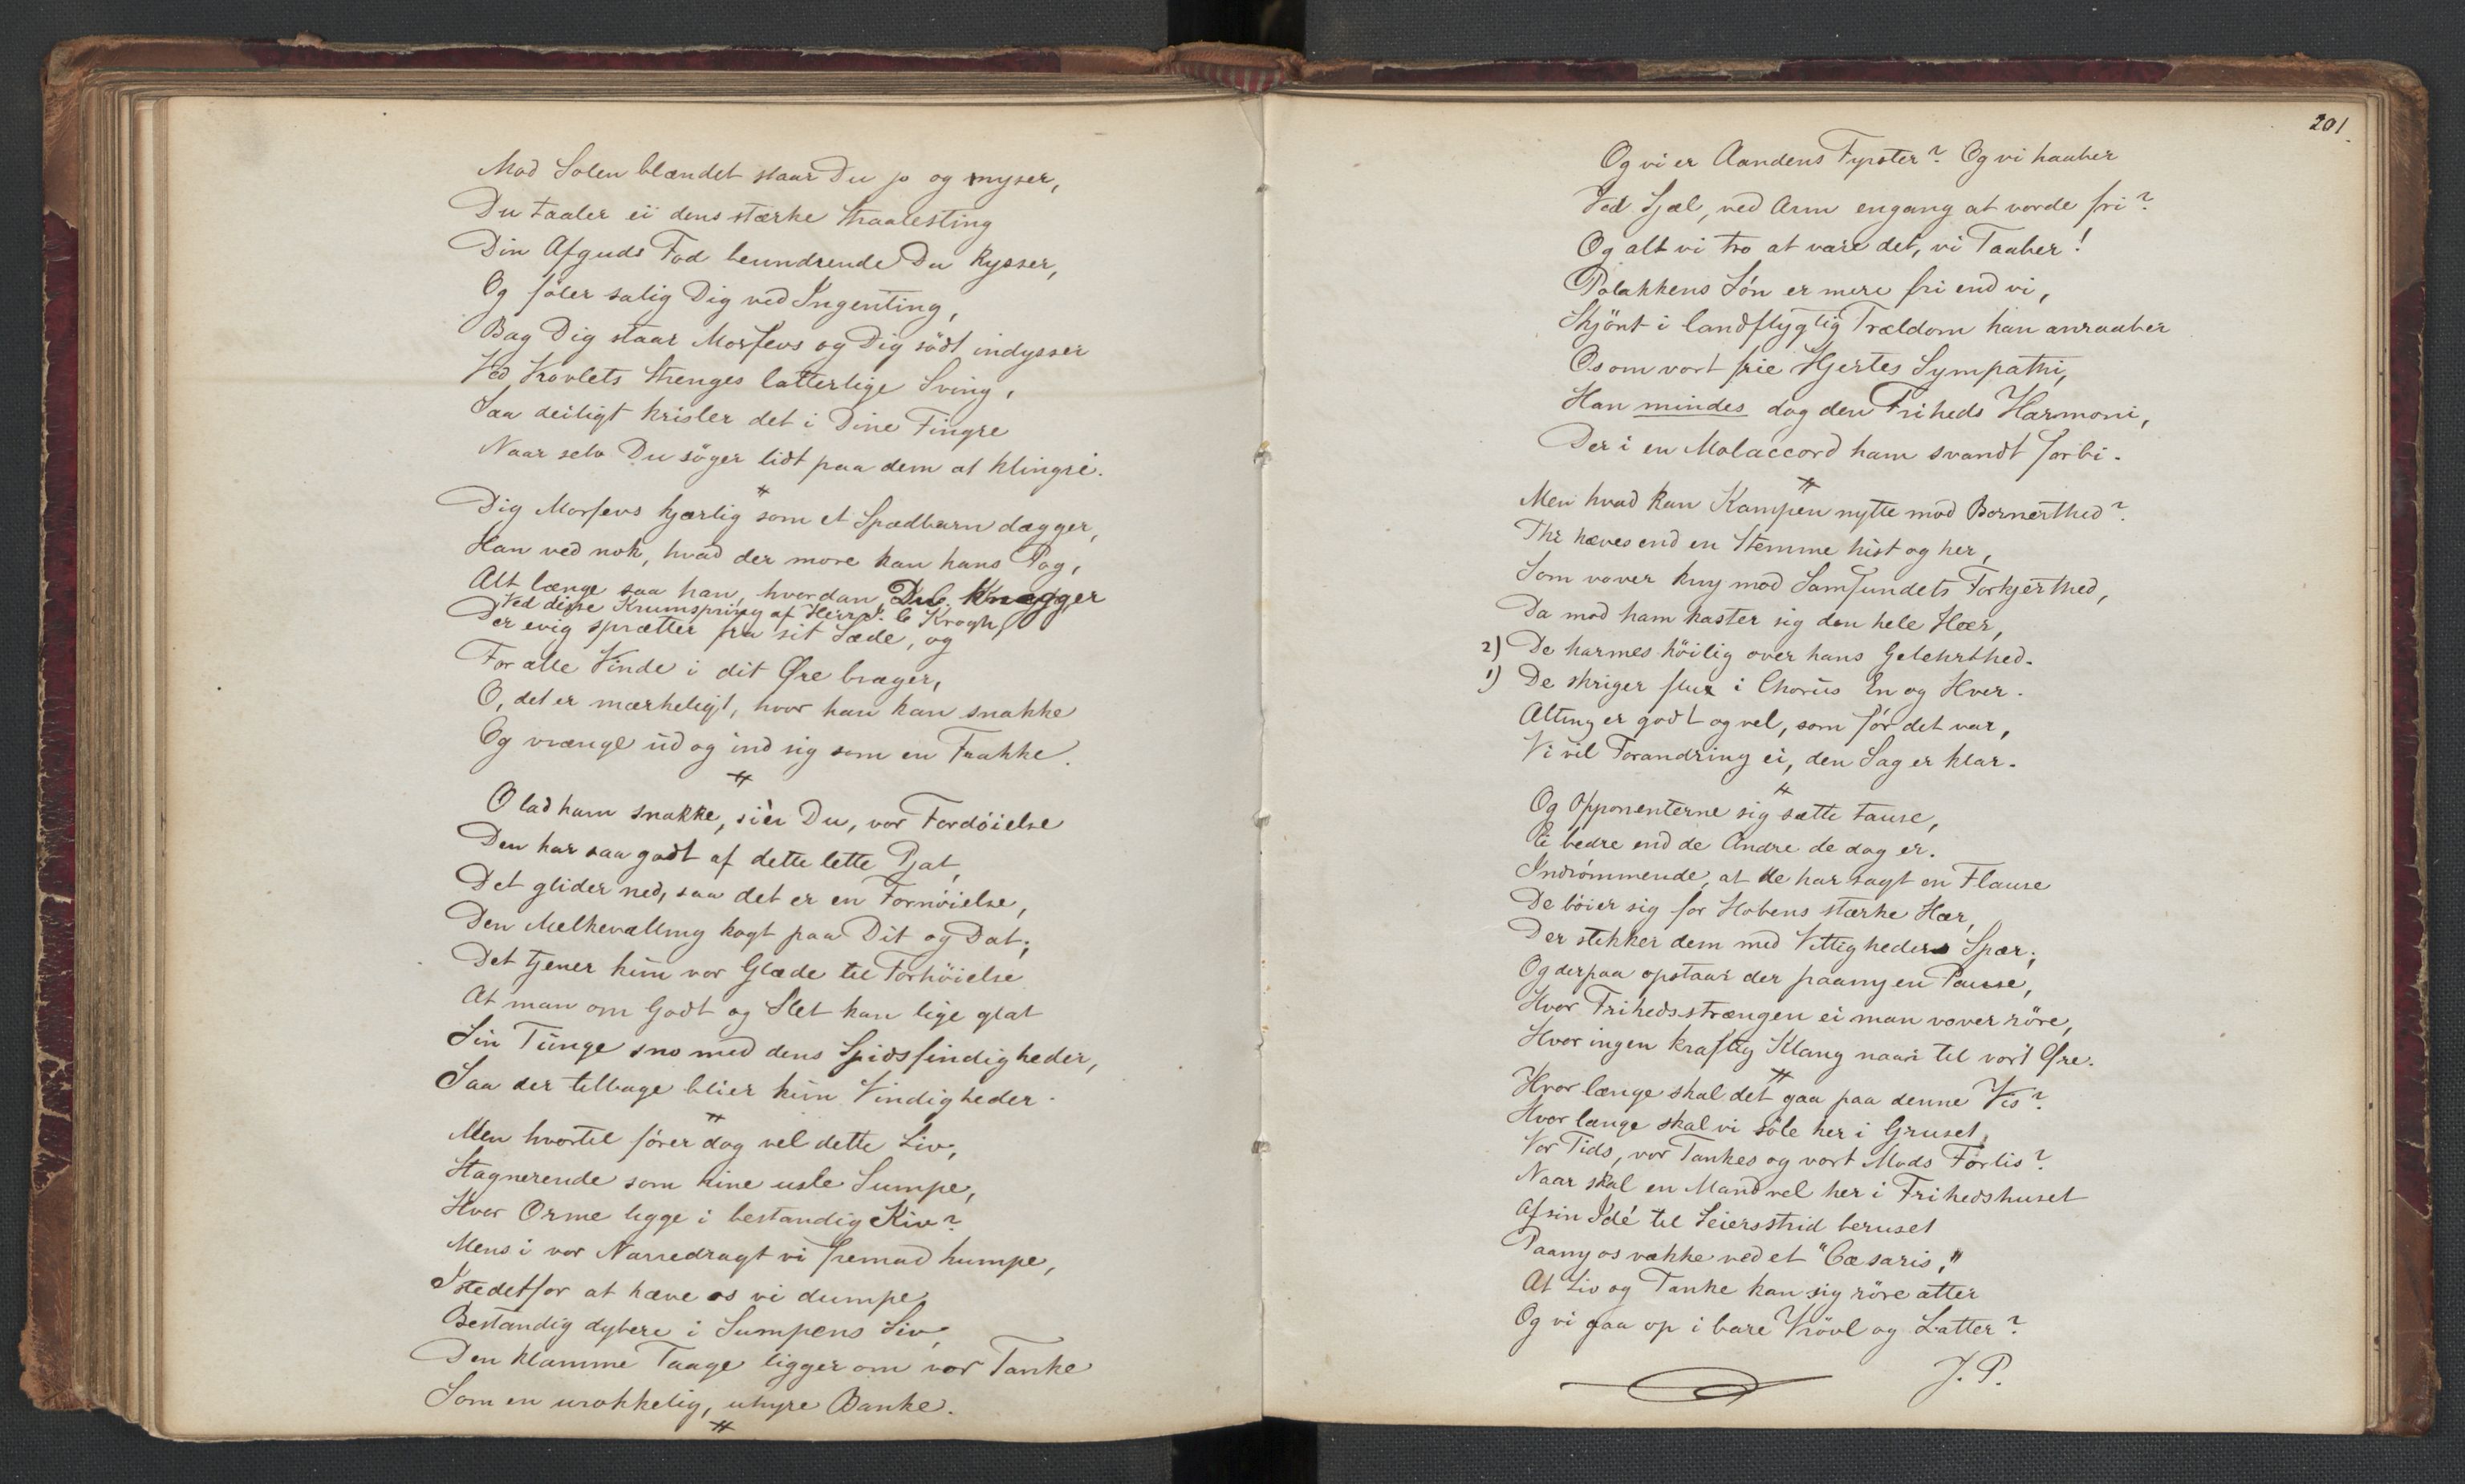 Mod Solen blændet staar Du jo og myser,
Du taaler ei dens stærke Straalesting
Din Afguds Fod beundrende Du kysser,
Og føler salig Dig ved Ingenting,
Bag Dig staar Morfevs og Dig södt indysser
Ved Vrøvlets Strenges latterlige Sving,
Saa deiligt krisler det i Dine Fingre
Naar selv Du söger lidt paa dem at klingre.
Dig Morfevs kjærlig som et Spædbarn dægger,
Han ved nok, hvad der more kan hans Pog,
Alt længe saa han, hvordan Du knægger
Ved disse Krumspring af Herr J. C Krogh,
Der evig sprætter fra sit Sæde, og
For alle Vinde i dit Øre bræger,
O, det er mærkeligt, hvor han kan snakke
Og vrænge ud og ind sig som en Frakke.
O lad ham snakke, siér Du, vor Fordöielse
Den har saa godt af dette lette Pjat,
Det glider ned, saa det er en Fornöielse,
Den Melkevælling kogt paa Dit og Dat;
Det tjener kun vor Glæde til Forhöielse
At man om Godt og Slet kan lige glat
Sin Tunge sno med dens Spidsfindigheder,
Saa der tilbage blier kun Vindigheder.
Men hvortil förer dog vel dette Liv,
Stagnerende som hine usle Sumpe,
Hvor Orme ligge i bestandig Kiv?
Mens i vor Narredragt vi fremad humpe,
Istedetfor at hæve os vi dumpe
Bestandig dybere i Sumpens Siv,
Den klamme Taage ligger om vor Tanke
Som en urokkelig, uhyre Banke.
201
Og vi er Aandens Fyrster? Og vi haaber
Ved Sjæl, ved Arm engang at vorde fri?
Og alt vi tro at være det, vi Taaber!
Polakkens Sön er mere fri end vi,
Skjönt i landflygtig Trældom han anraaber
Os om vort frie Hjertes Sympathi,
Han mindes dog den Friheds Harmoni,
Der i en Molaccord ham svandt forbi.
Men hvad kan Kampen nytte mod Bornerthed?
Thi hæves end en Stemme hist og her,
Som vover kny mod Samfundets Forkjerthed,
Da mod ham kaster sig den hele Hær,
2) De harmes höilig over hans Gelehrthed.
1) De skriger flux i Chorus En og Hver.
Alting er godt og vel, som för det var,
Vi vil Forandring ei, den Sag er klar.
Og Opponenterne sig sætte tause,
Ei bedre end de Andre de dog er.
Indrömmende, at de har sagt en Flause
De böier sig for Hobens stærke Hær,
Der stikker dem med Vittigheders Spær;
Og derpaa opstaar der paany en Pause,
Hvor Frihedsstrængen ei man vover röre,
Hvor ingen kraftig Klang naar til vort Øre.
Hvor længe skal det gaa paa denne Vis?
Hvor længe skal vi söle her i Gruset
Vor Tids, vor Tankes og vort Mods Forlis?
Naar skal en Mand vel her i Frihedshuset
Af sin Idé til Seiersstrid beruset
Paany os vække ved et "Cæsaris,"
At Liv og Tanke kan sig röre atter
Og vi gaa op i bare Vrövl og Latter?
J. P.